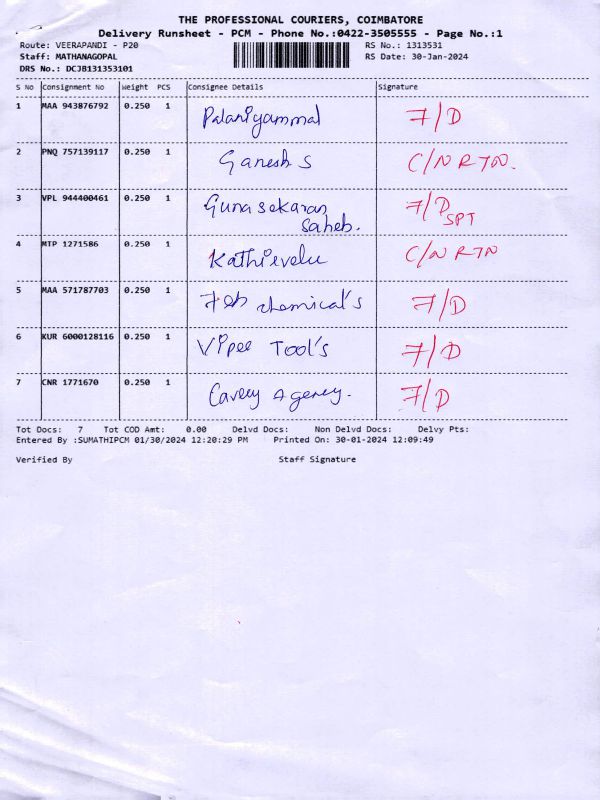 THE PROFESSIONAL COURIERS, COIMBATORE
Delivery Runsheet - PCM - Phone No.:0422-3505555 - Page No.:1
Route: VEERAPANDI - P20 RS No.: 1313531
Staff: MATHANAGOPAL RS Date: 30-Jan-2024
DRS No.: DCJB131353101
S No Consignment No Weight PCS Consignee Details Signature
1 MAA 943876792 0.250 1 Palaniyammal 7/D
2 PNQ 757139117 0.250 1 Ganesh S C/N RTN.
3 VPL 944400461 0.250 1 Gunasekaran Saheb. 7/D SPT
4 MTP 1271586 0.250 1 Kathirvelu C/N RTN
5 MAA 571787703 0.250 1 chemical's 7/D
6 KUR 6000128116 0.250 1 Vipee Tool's 7/D
7 CNR 1771670 0.250 1 Agency. 7/D
Tot Docs: 7 Tot COD Amt: 0.00 Delvd Docs: Non Delvd Docs: Delvy Pts:
Entered By :SUMATHIPCM 01/30/2024 12:20:29 PM Printed On: 30-01-2024 12:09:49
Verified By Staff Signature